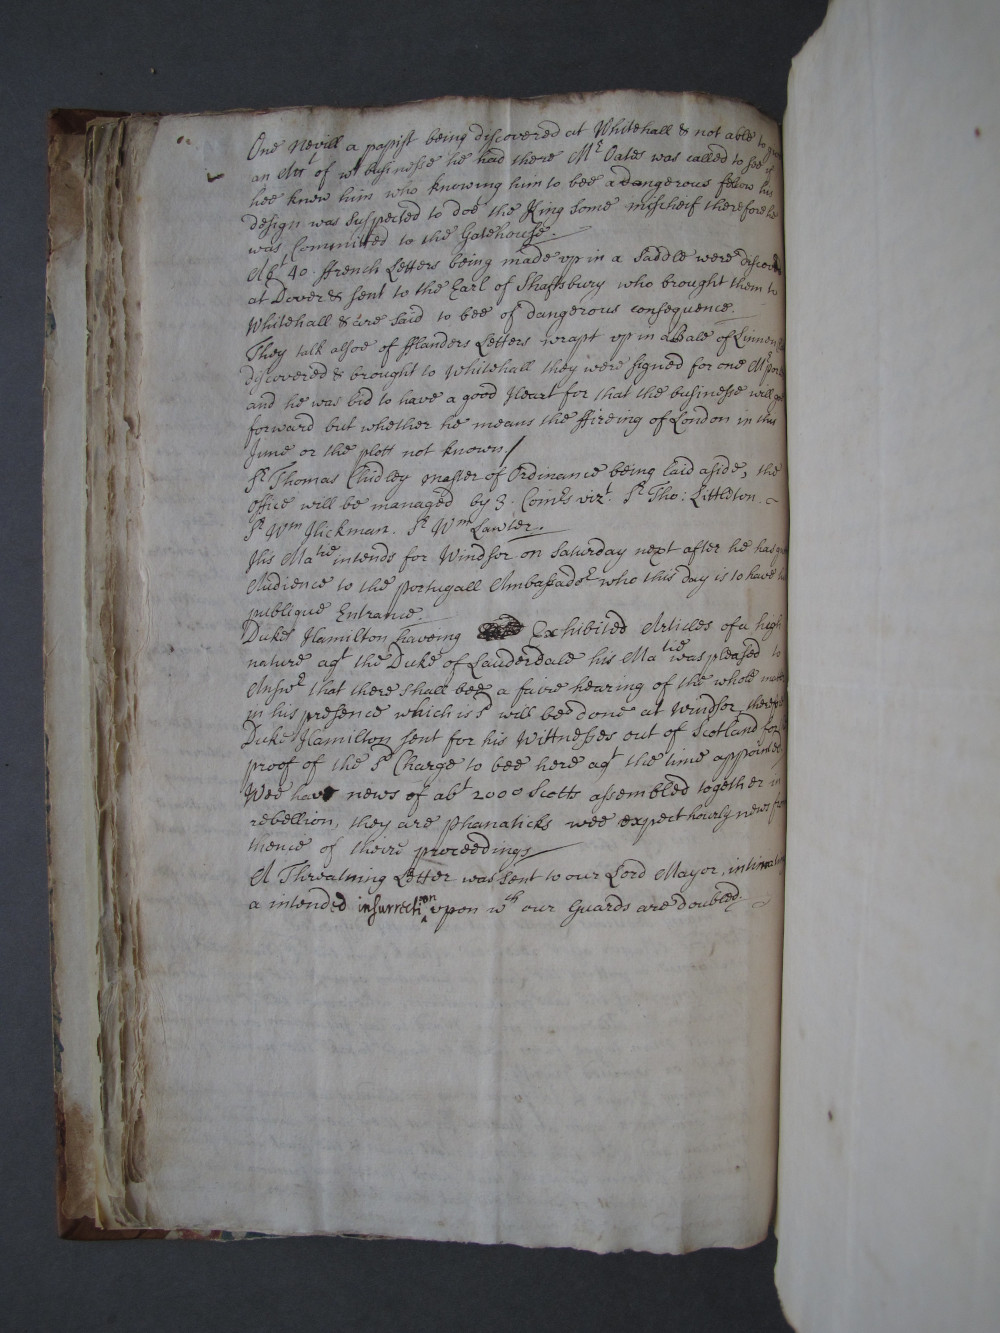 One Nevill a papist being discovered at Whitehall & not able to
an Act of wt businesse he had there Mr Oates was called to see if
hee knew him who knowing him to bee a dangerous fellow his
design was suspected to doe the King some mischeif therefore he
was Committed to the Gatehouse.
Abt 40. ffrench Letters being made vp in a Saddle were discovered
at Dover & sent to the Earl of Shaftsbury who brought them to
Whitehall & are said to bee of dangerous consequence.
They talk alsoe of fflanders Letters wrapt vp in a Bale of Linnen
discovered & brought to Whitehall they were signed for one Mr
and he was bid to have a good Heart for that the businesse will
forward but whether he means the ffireing of London in this
June or the plott not known/
Sr Thomas Chidley master of Ordinance being laid aside, the
office will be managed by 3. Comrs vizt. Sr Tho: Littleton.
Sr Wm Hickman. Sr Wm Lawler.
His Matie intends for Windsor on Saturday next after he has
Audience to the portugall Ambassador who this day is to have
publique Entrance.
Duke Hamilton haveing Exhibited Articles of a high
nature agt the Duke of Lauderdale his Matie was pleased to
Answr that there shall bee a faire hearing of the whole
in his presence which is sd will bee done at Windsor,
Duke Hamilton sent for his Wittnesses out of Scotland for
proof of the sd Charge to bee here agt the time appointed
Wee have news of abt 2000 Scotts assembled together in
rebellion, they are phanaticks wee expect hourly news from
thence of theire proceedings
A Threatning Letter was sent to our Lord Mayor, intimating
a intended insurrection vpon wch our Guards are doubled.